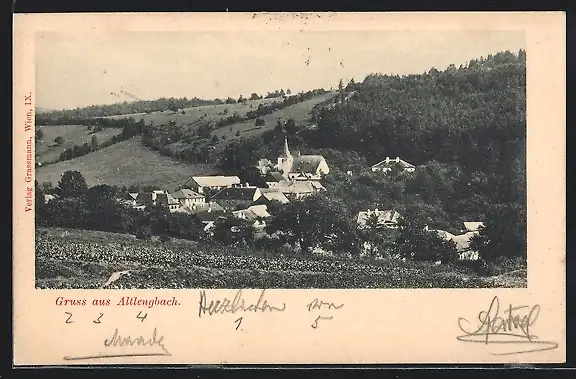 Verlag Grassmann, Wien, IX.
Gruss aus Altlengbach.
Herzlichen von
2 3 4 1 5